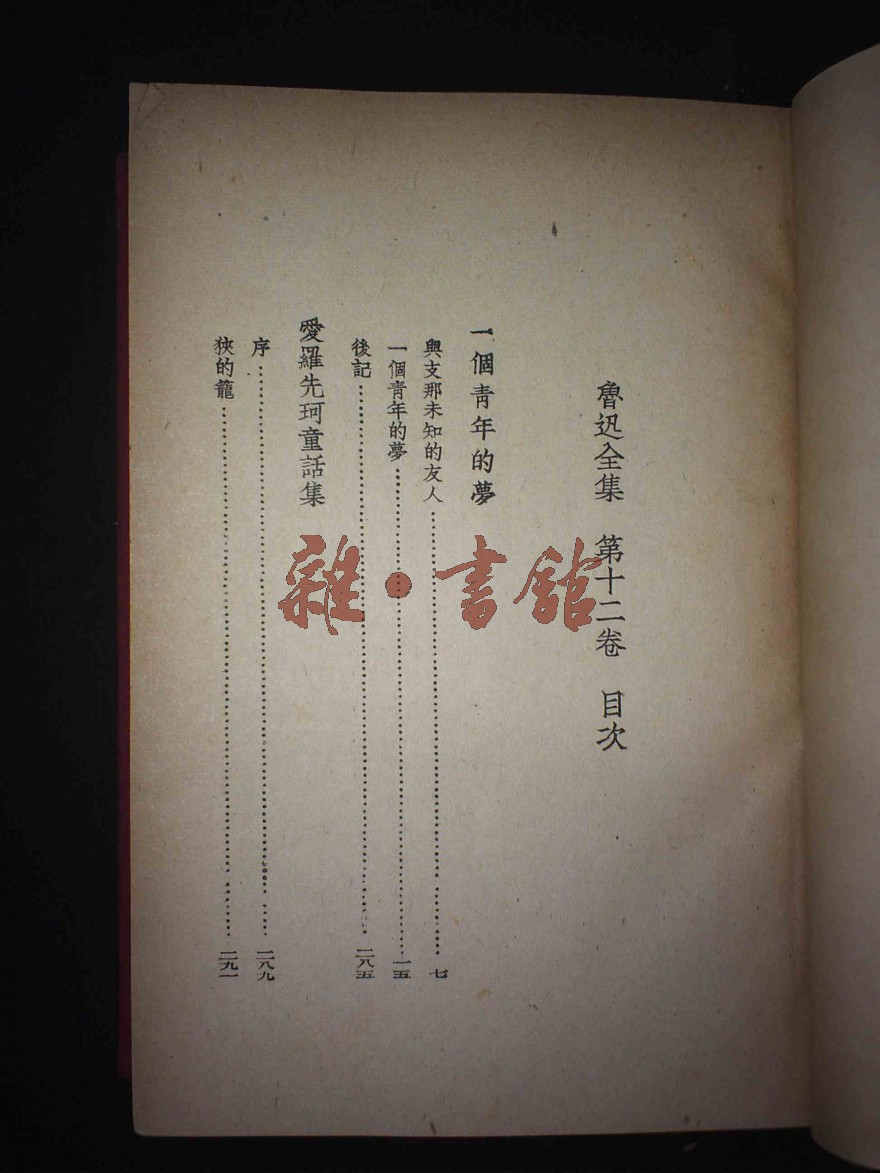 魯迅全集 第十二卷 目次
一個青年的夢
與支那未知的友人…………七
一個青年的夢…………一五
後記…………二八五
愛羅先珂童話集
序…………二八九
狹的籠…………二九一
雜・書館